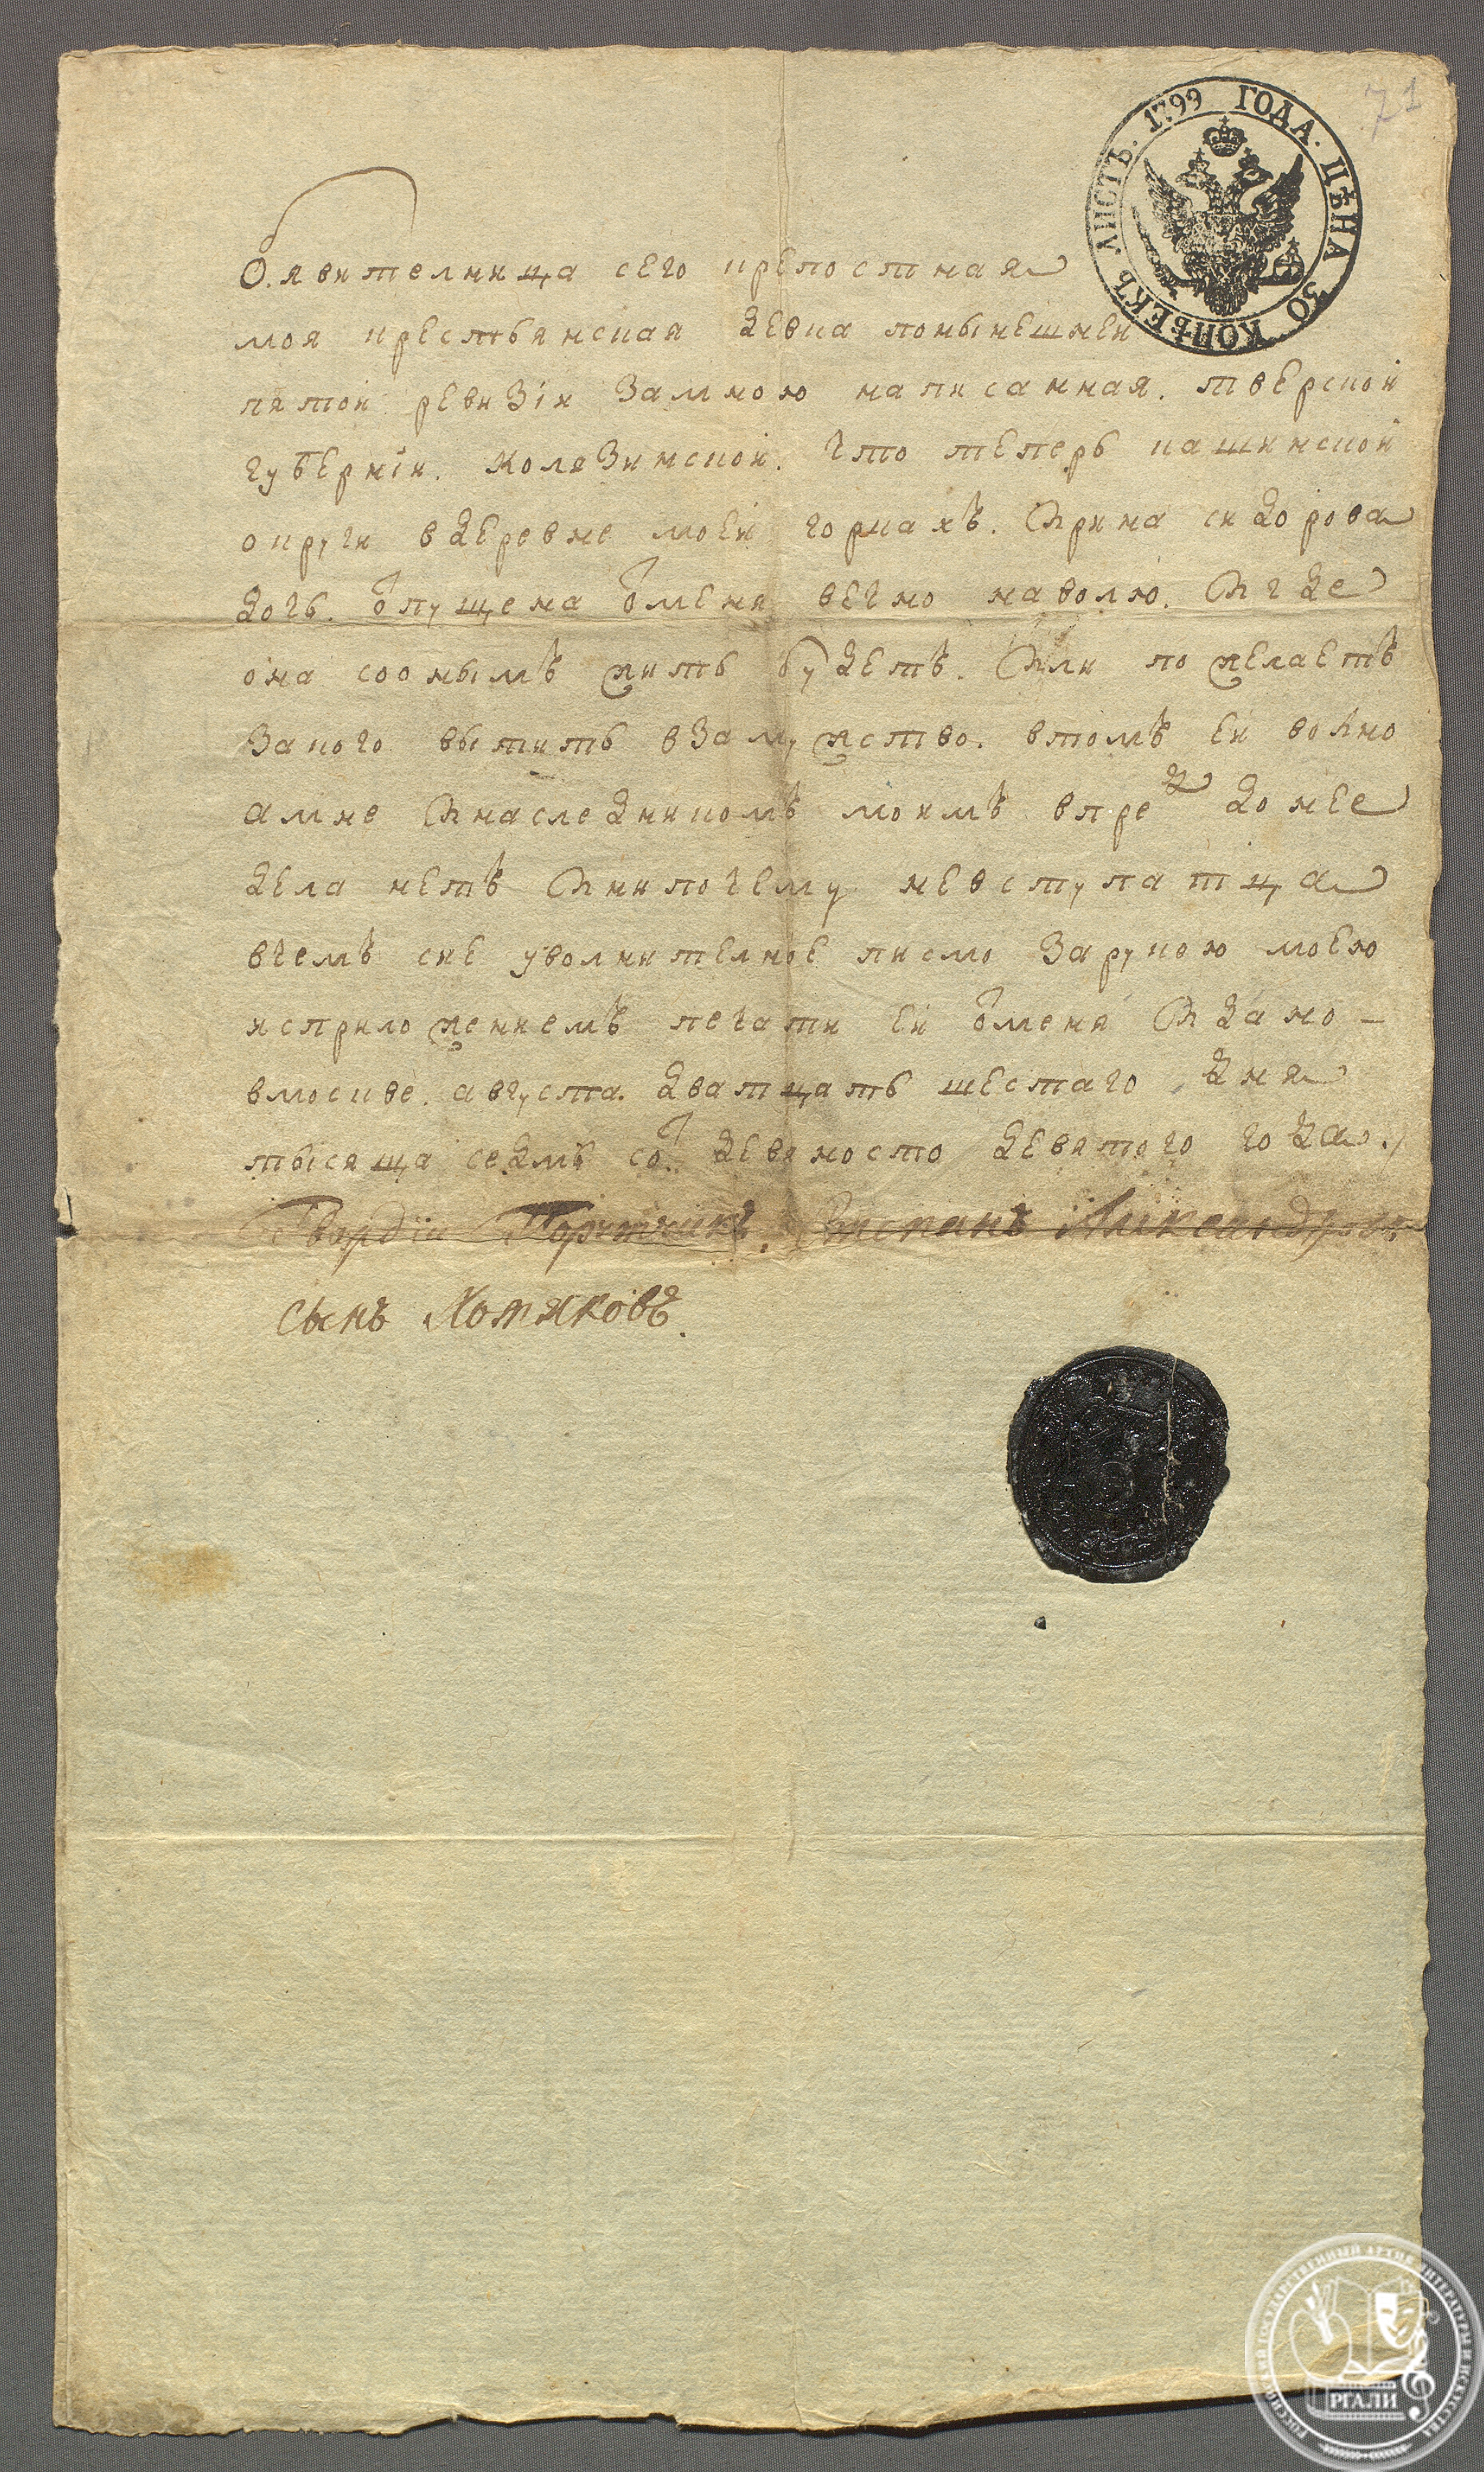 71
ЛИСТЪ. 1799 ГОДА. ЦѢНА 30 КОПѢЕКЪ
Обявителница сего крепостная
моя крестьянская девка понынешнеи
пятои ревизіи замною написанная. тверской
губерніи. колязинской. что теперь кашинской
округи вдеревне моеи горкахъ. Ирина сидорова
дочь. отпущена отменя вечно наволю. И где
она соонымъ жить будетъ. Или пожелаетъ
закого вытить взамужство. втомъ еи волно
амне Инаследникомъ моимъ впредъ донее
дела нетъ Инипочему невступатца
вчемъ сие уволнителное писмо зарукою моею
исприложениемъ печати еи отменя Идано –
вмоскве. августа. дватцать шестаго дня
тысяща седмъ сотъ девяносто девятого года.
Гвардіи Порутчикъ. Степанъ Александровъ
сынъ Хомяковъ.
РОССИЙСКИЙ ГОСУДАРСТВЕННЫЙ АРХИВ ЛИТЕРАТУРЫ И ИСКУССТВА
РГАЛИ